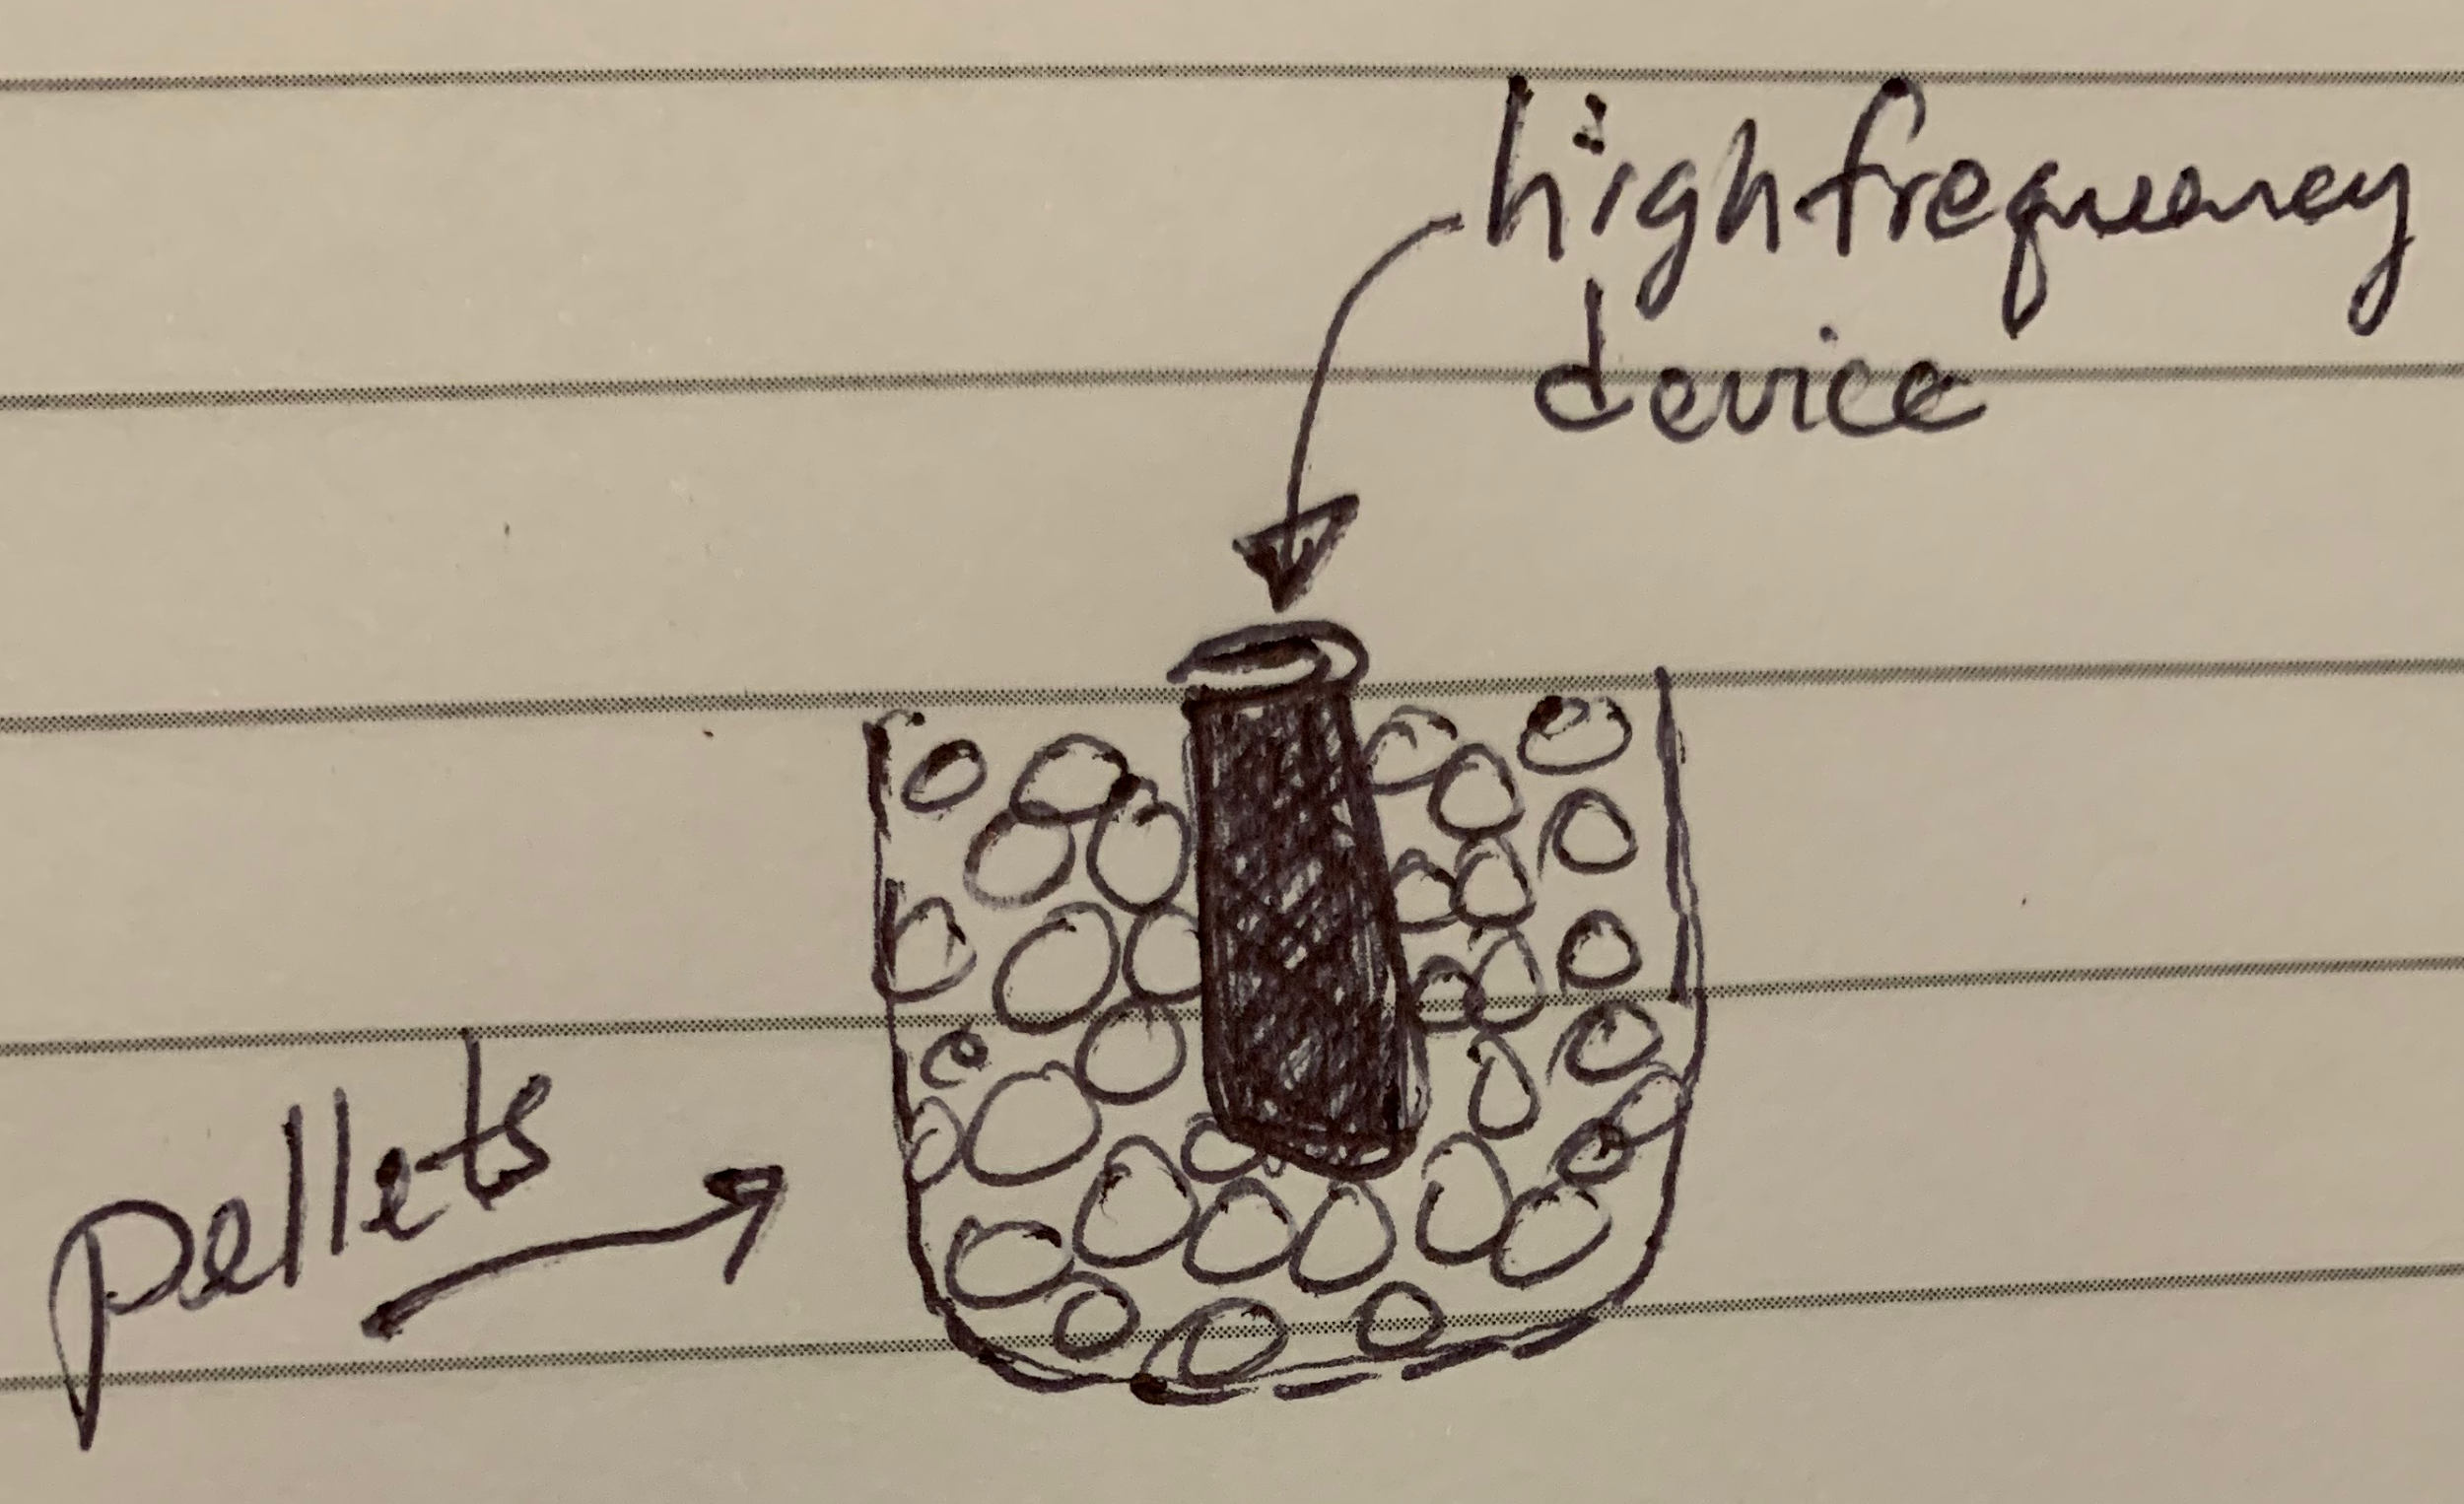 high frequency
device
pellets